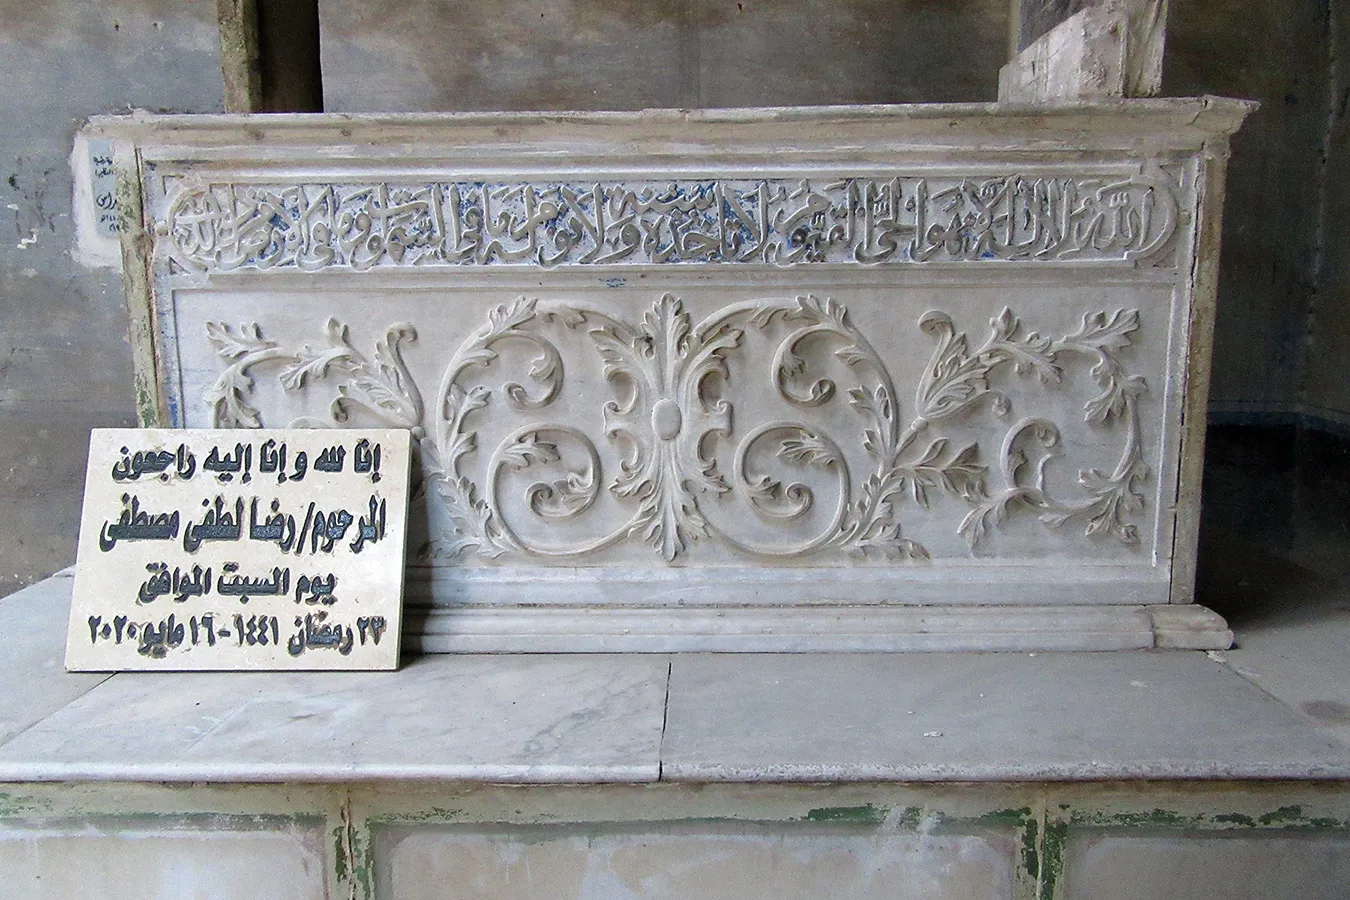 الله لا اله الا هو الحى القيوم لا تأخذه سنة ولا نوم له ما فى السموات وما فى الارض
إنا لله وإنا إليه راجعون
المرحوم/ رضا لطفى مصطفى
يوم السبت الموافق
٢٣ رمضان ١٤٤١-١٦ مايو ٢٠٢٠